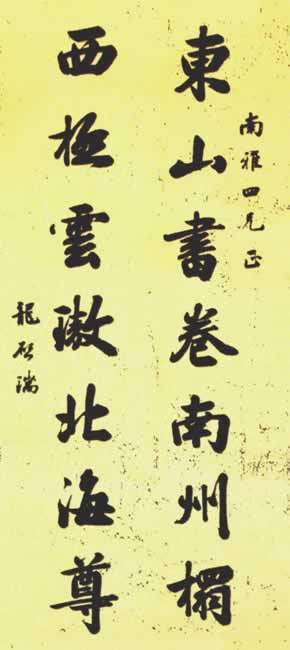 南雅四兄正
東山書卷南州榻
西極雲璈北海尊
龍啟瑞